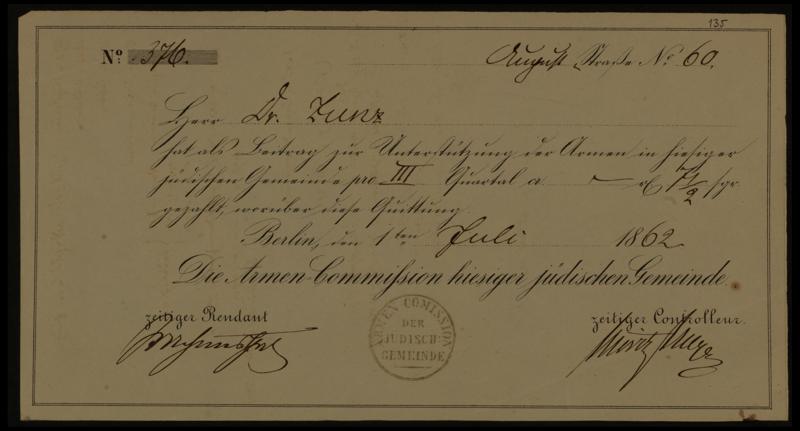 135
No: 376.
August Straße No 60.
Herr Dr. Zunz
hat als Beitrag zur Unterstützung der Armen in hiesiger
jüdischen Gemeinde pro III Quartal a — rt 7½ sgr.
gezahlt, worüber diese Quittung.
Berlin, den 1ten Juli 1862
Die Armen-Commißion hiesiger jüdischen Gemeinde.
zeitiger Rendant
zeitiger Controlleur.
Moritz
ARMEN COMISSION
DER
JÜDISCH:
GEMEINDE